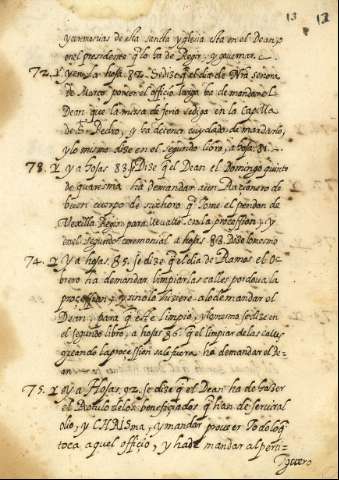 13 12
y cerimonias de esta santa yglesia esta en el Dean, o
en el presidente q̃ lo ha de Regir, y governar.
72. Y en la hoja. 82. Se dize q̃ el dia de Nra señora
de Março por ser el officio largo ha de mandar el
Dean que la missa de feria se diga en la Capilla
de S. Pedro, y ha de tener cuydado de mandarlo,
y lo mismo dize en el segundo libro, a hoja. 81.
73. Y a hojas 83. Dize q̃ el Dean el Domingo quinto
de quaresma ha de mandar a un Razionero de
buen cuerpo de su choro q̃ tome el pendon de
Vexilla Regis para llevallo en la procession, y
en el segundo cerimonial a hojas 83. Dize lo mesmo
74. Y a hojas. 85. se dize q̃ el dia de Ramos el O-
brero ha de mandar limpiar las calles por do va la
procession, y si no lo hiziere a lo de mandar el
Dean, para q̃ este limpio, y lo mesmo se dize en
el segundo libro, a hojas 86. q̃ el limpiar de las calles
quando la procession sale fuera ha de mandar el De-
an
75. Y a Hojas, 92, se dize q̃ el Dean ha de hazer
el Rotulo de los beneficiados q̃ han de servir al
olio, y CHRISma, y mandar proveer Todo lo q̃
toca a quel officio, y ha de mandar al perti-
guero